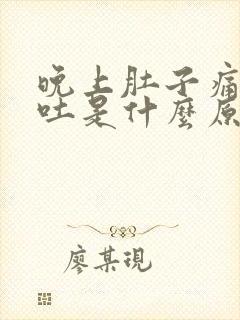 晚上肚子痛
吐是什麼原
廖某現